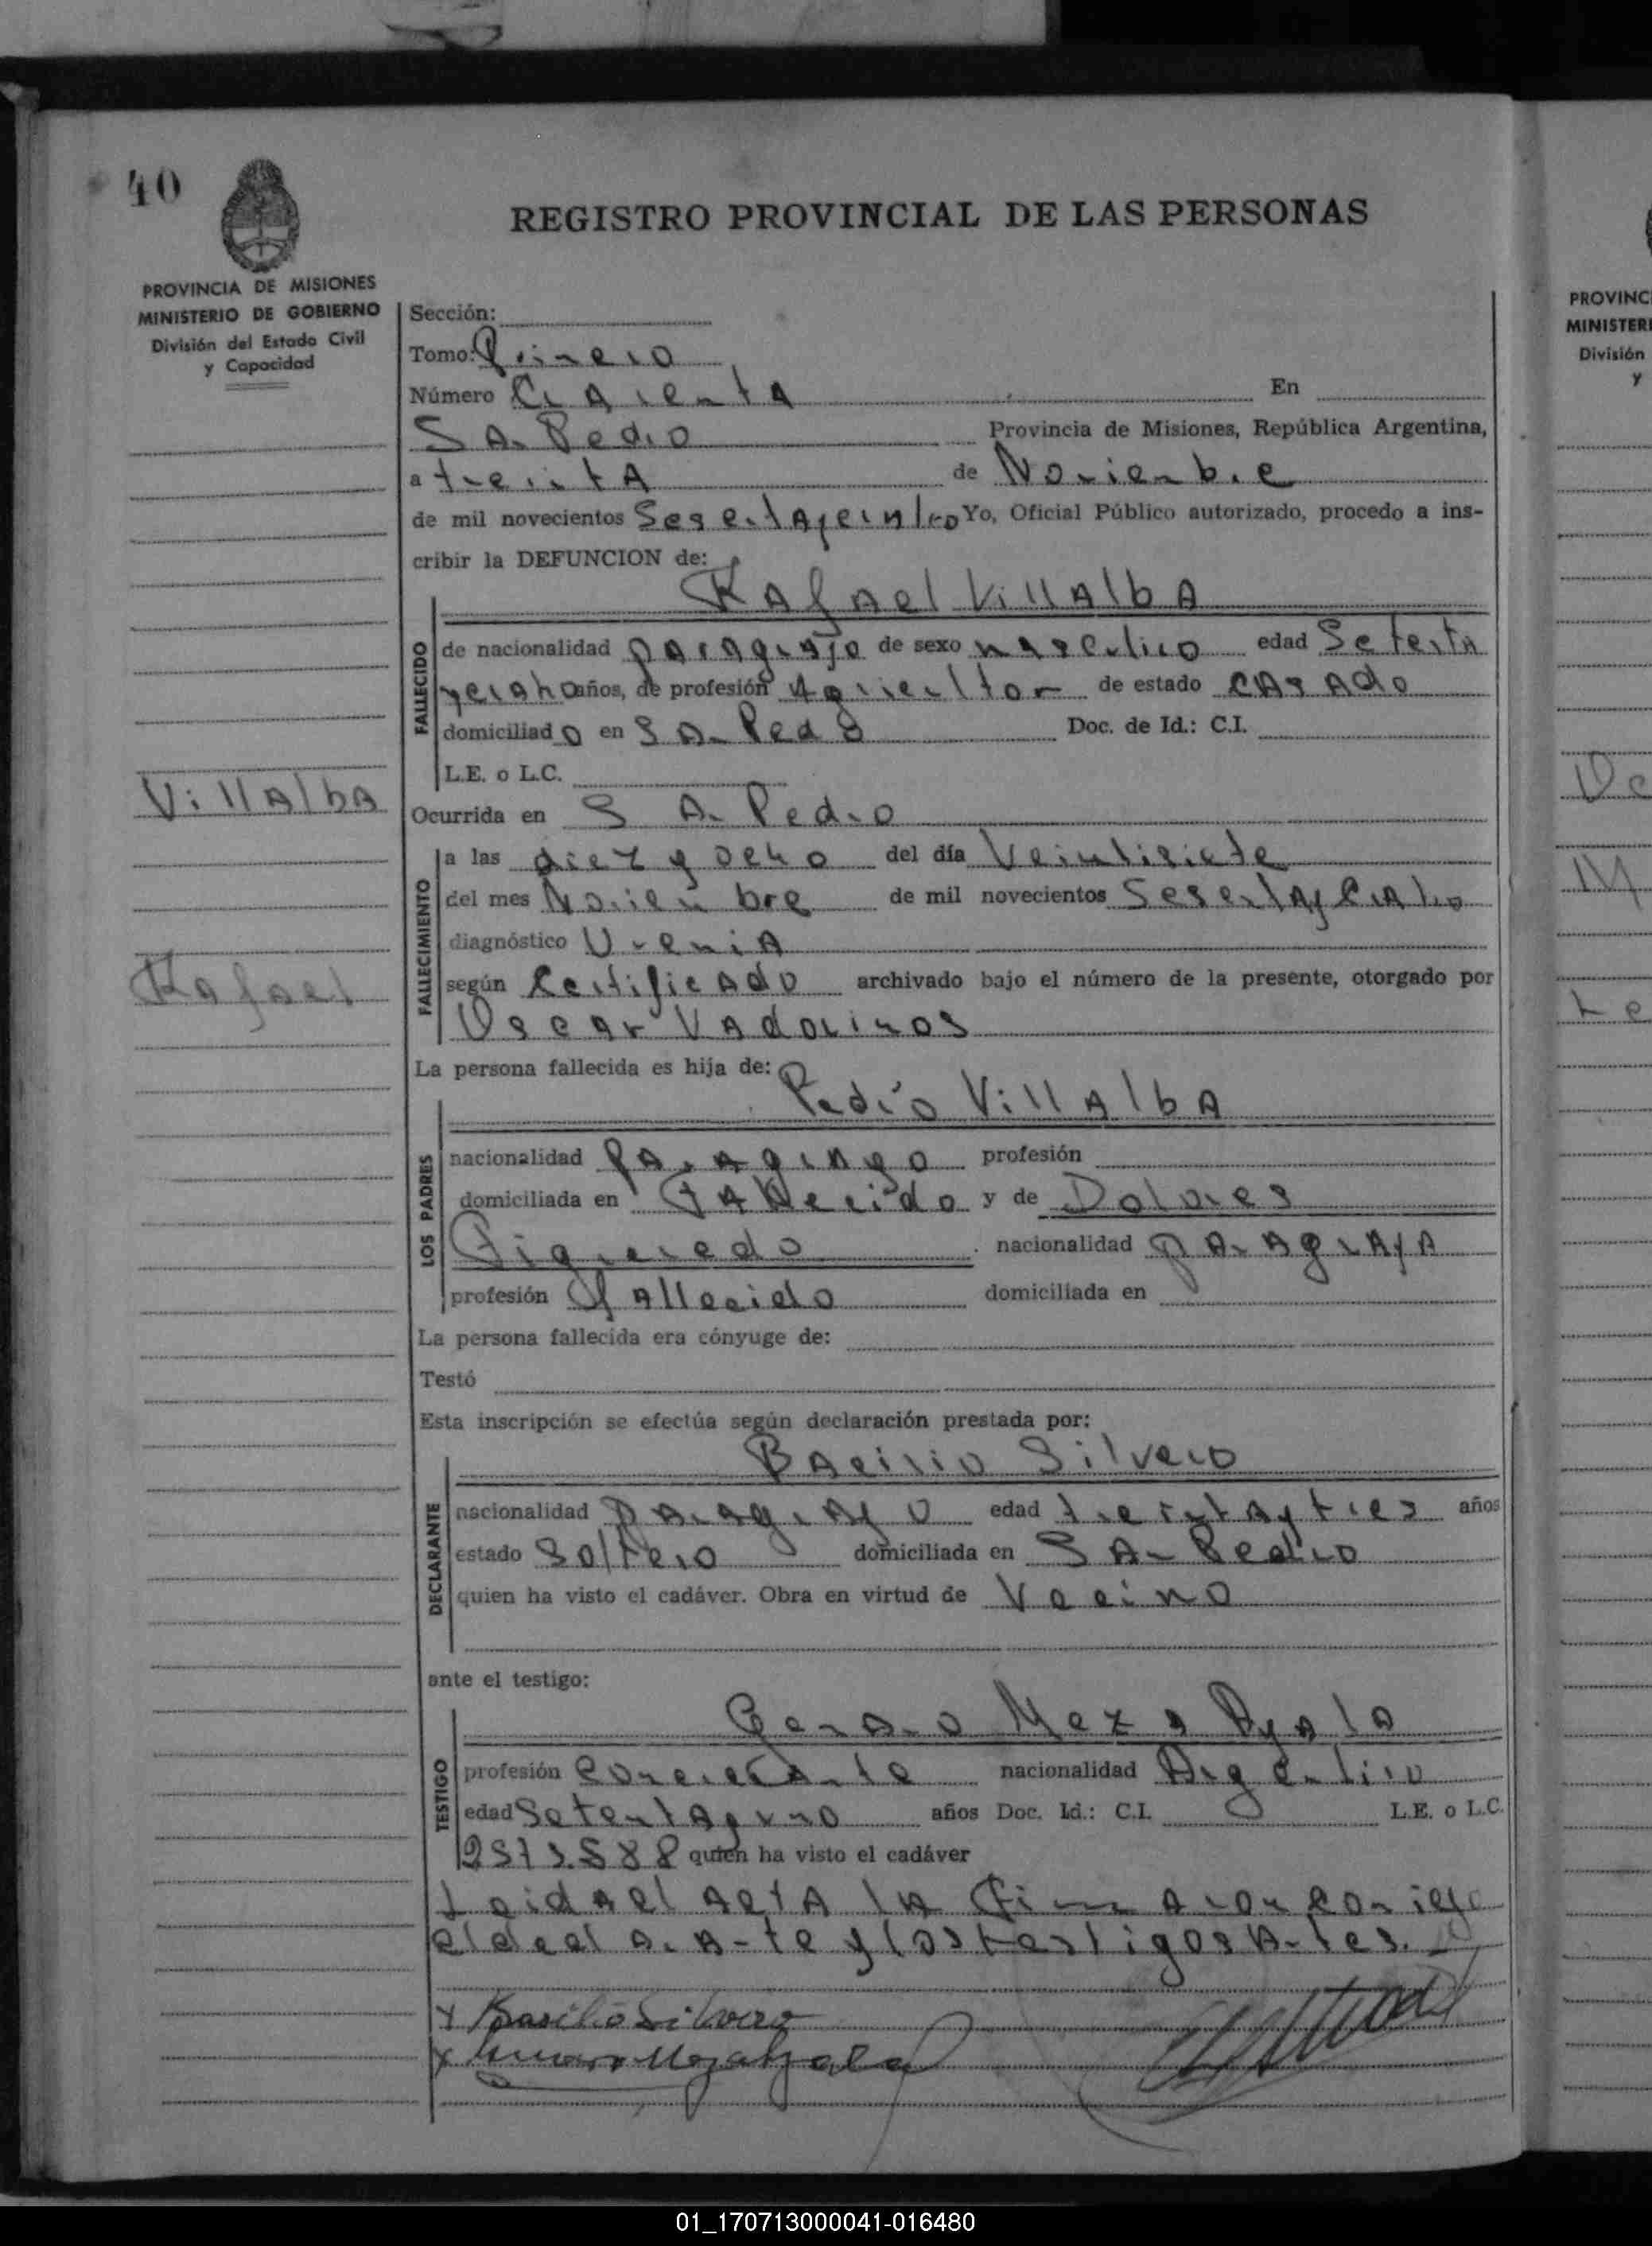 40
REGISTRO PROVINCIAL DE LAS PERSONAS
PROVINCIA DE MISIONES
MINISTERIO DE GOBIERNO
División del Estado Civil
y Capacidad
Sección:
Tomo: Primero
Número Cuarenta En
San Pedro Provincia de Misiones, República Argentina,
a treinta de Noviembre
de mil novecientos Yo, Oficial Público autorizado, procedo a ins-
cribir la DEFUNCION de:
Rafael Villalba
FALLECIDO
de nacionalidad paraguayo de sexo masculino edad Setenta
yocho años, de profesión Agricultor de estado casado
domiciliado en San Pedro Doc. de Id.: C.I.
L.E. o L.C.
Villalba
Ocurrida en San Pedro
FALLECIMIENTO
a las diez y ocho del día Veintisiete
del mes Noviembre de mil novecientos
diagnóstico Uremia
Rafael
según Certificado archivado bajo el número de la presente, otorgado por
Oscar
La persona fallecida es hija de:
Pedro Villalba
LOS PADRES
nacionalidad Paraguayo profesión
domiciliada en Fallecido y de Dolores
Figueredo nacionalidad paraguaya
profesión fallecido domiciliada en
La persona fallecida era cónyuge de:
Testó
Esta inscripción se efectúa según declaración prestada por:
Bacilio Silvero
DECLARANTE
nacionalidad paraguayo edad treinta y tres años
estado Soltero domiciliada en San Pedro
quien ha visto el cadáver. Obra en virtud de Vecino
ante el testigo:
Genaro Meza Ayala
TESTIGO
profesión Comerciante nacionalidad Argentino
edad Setenta y uno años Doc. Id.: C.I. L.E. o L.C.
quien ha visto el cadáver
Leida el acta la firmaron conmigo
el declarante y los testigos
x Basilio Silvero
x Meza Ayala
PROVINC
MINISTERI
División
y
01_170713000041-016480